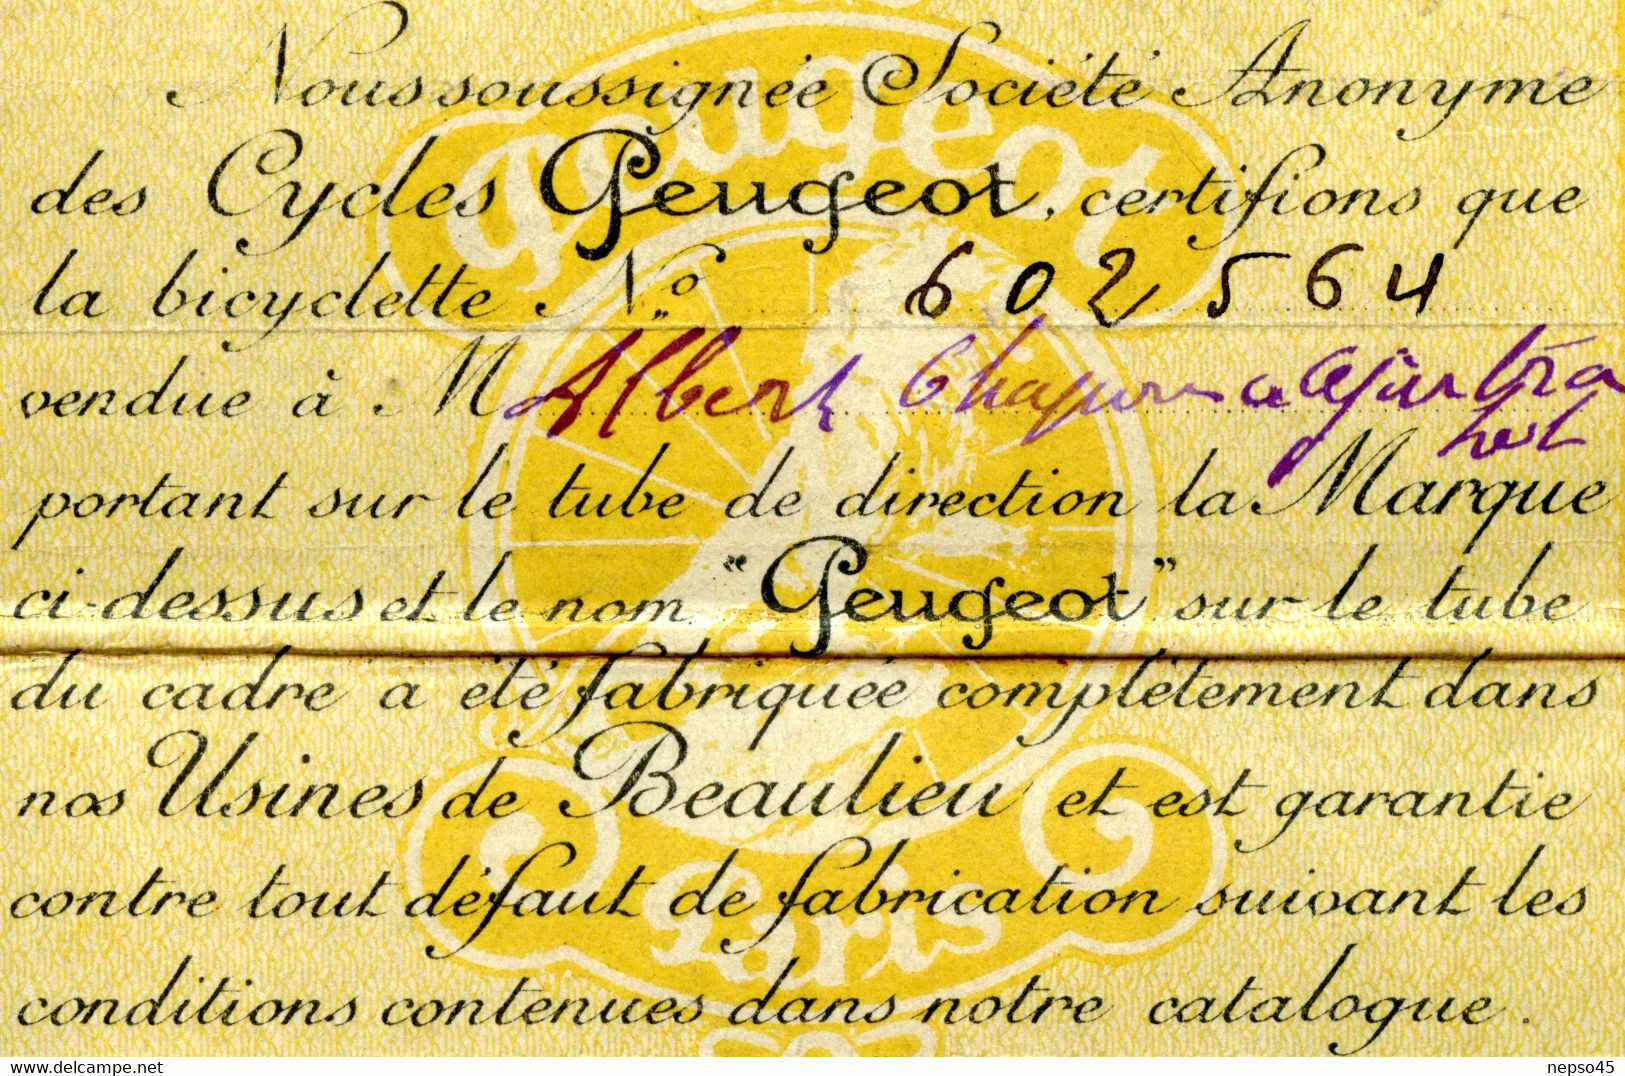 Nous soussignée Société Anonyme
des Cycles Peugeot, certifions que
la bicyclette No. 602564
vendue à M Albert
portant sur le tube de direction la Marque
ci-dessus et le nom "Peugeot" sur le tube
du cadre a été fabriquée complètement dans
nos Usines de Beaulieu et est garantie
contre tout défaut de fabrication suivant les
conditions contenues dans notre catalogue.
Peugeot
Paris
delcampe.net
nepso45